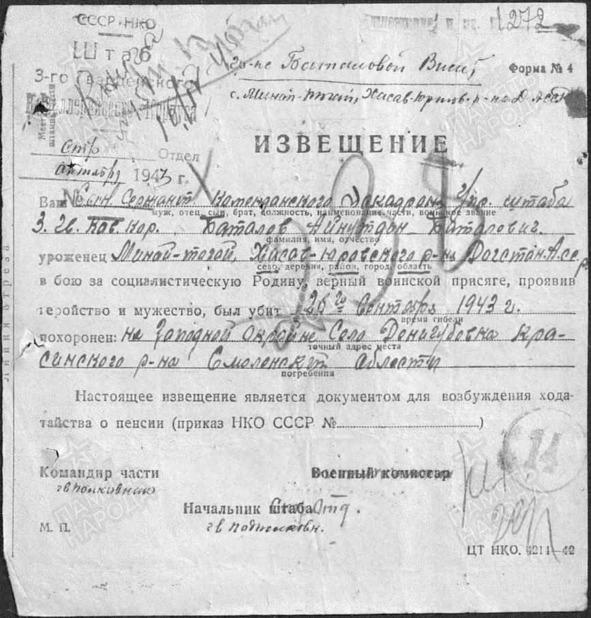 СССР-НКО
Штаб
3-го Гвардейского
1272
Гр-не Баталовой
Форма № 4
с. Минай-Тогай, Хасав-Юртов. р-на Д. АССР
ИЗВЕЩЕНИЕ
Отдел
октября 1943 г.
Ваш Сын Сержант Комендантского Эскадрона Упр. штаба
муж, отец, сын, брат, должность, наименование части, воинское звание
3. Гв. Кав. Кор. Баталов Айнутдин Баталович
фамилия, имя, отчество
уроженец Минай-тогай, Хасав-юровского р-на Догстан. А.с.с.р
село, деревня, район, город, область
в бою за социалистическую Родину, верный воинской присяге, проявив
геройство и мужество, был убит 26го Сентября 1943 г.
время гибели
похоронен: на Западной Окраине Село Демидовка Кра-
точный адрес места
синского р-на Смоленской области
погребения
Настоящее извещение является документом для возбуждения хода-
тайства о пенсии (приказ НКО СССР №
14
Командир части
Военный комиссар
гв полковник
Начальник штаба
гв подполковн.
М. П.
ЦТ НКО. 4214—42
линия отреза